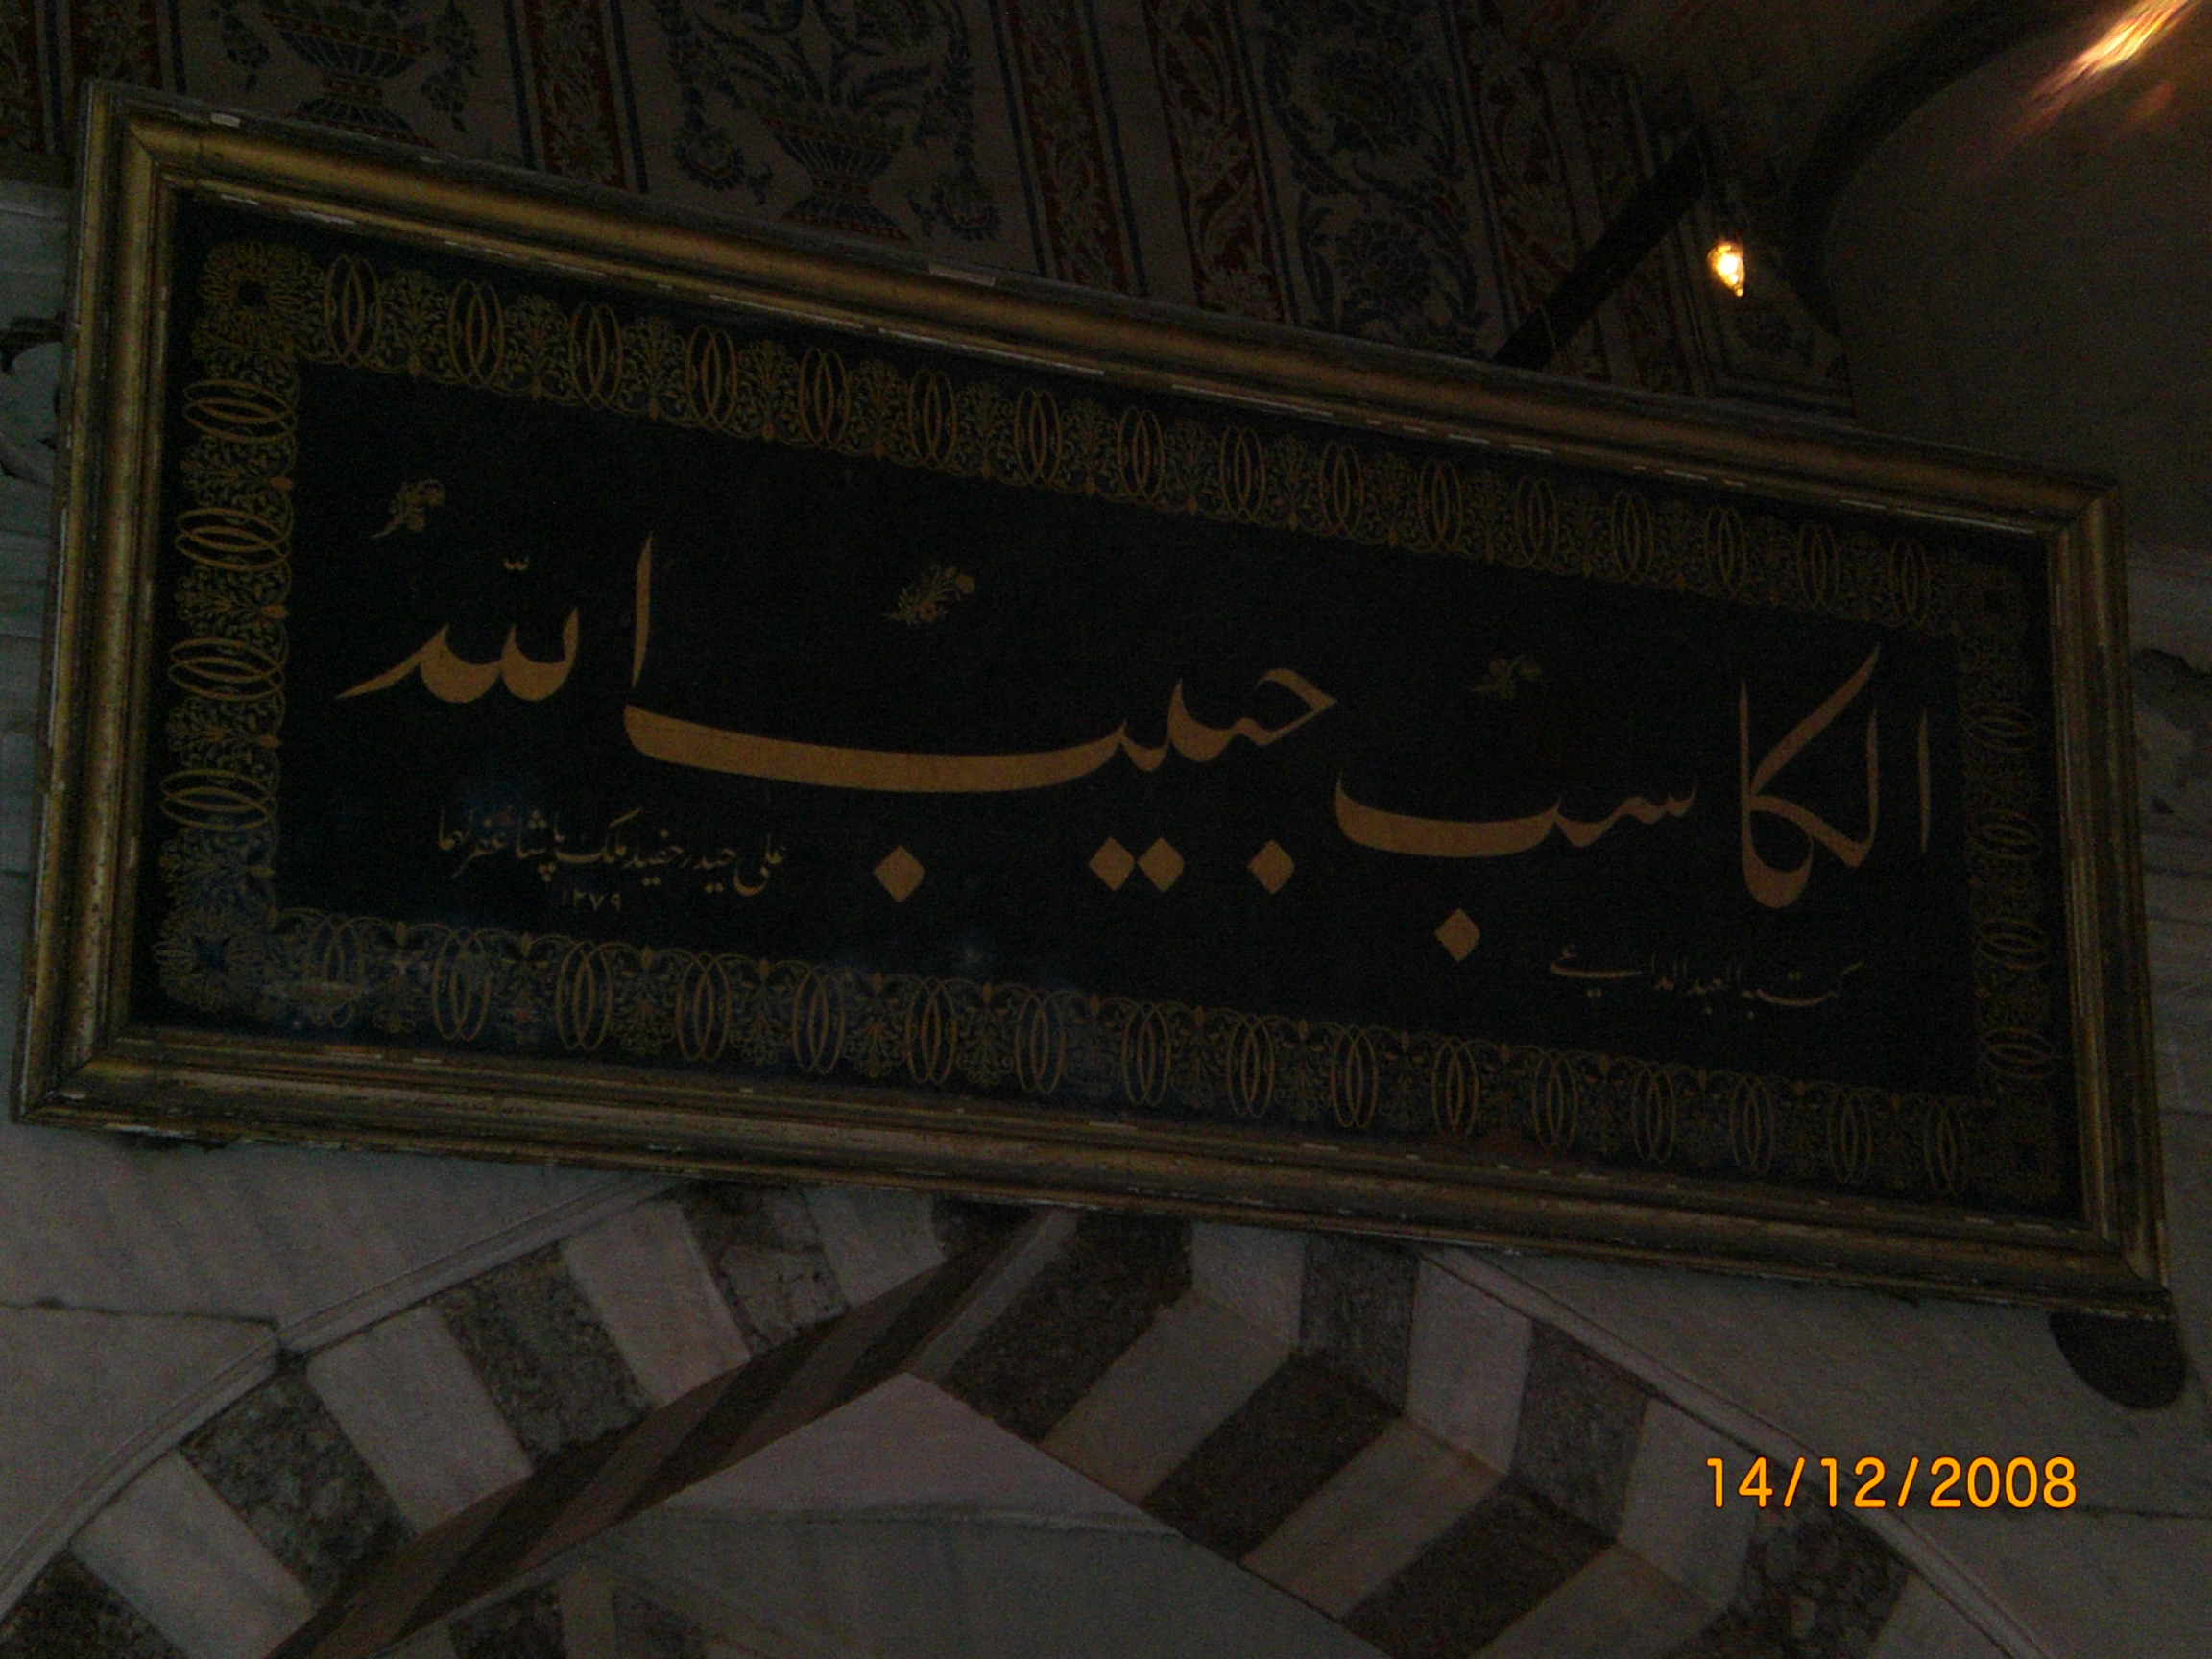 الكاسب حبيب الله
كتبه العبد الداعي
علی حیدر حفید ملک پاشا غفر لهما
١٢٧٩
14/12/2008